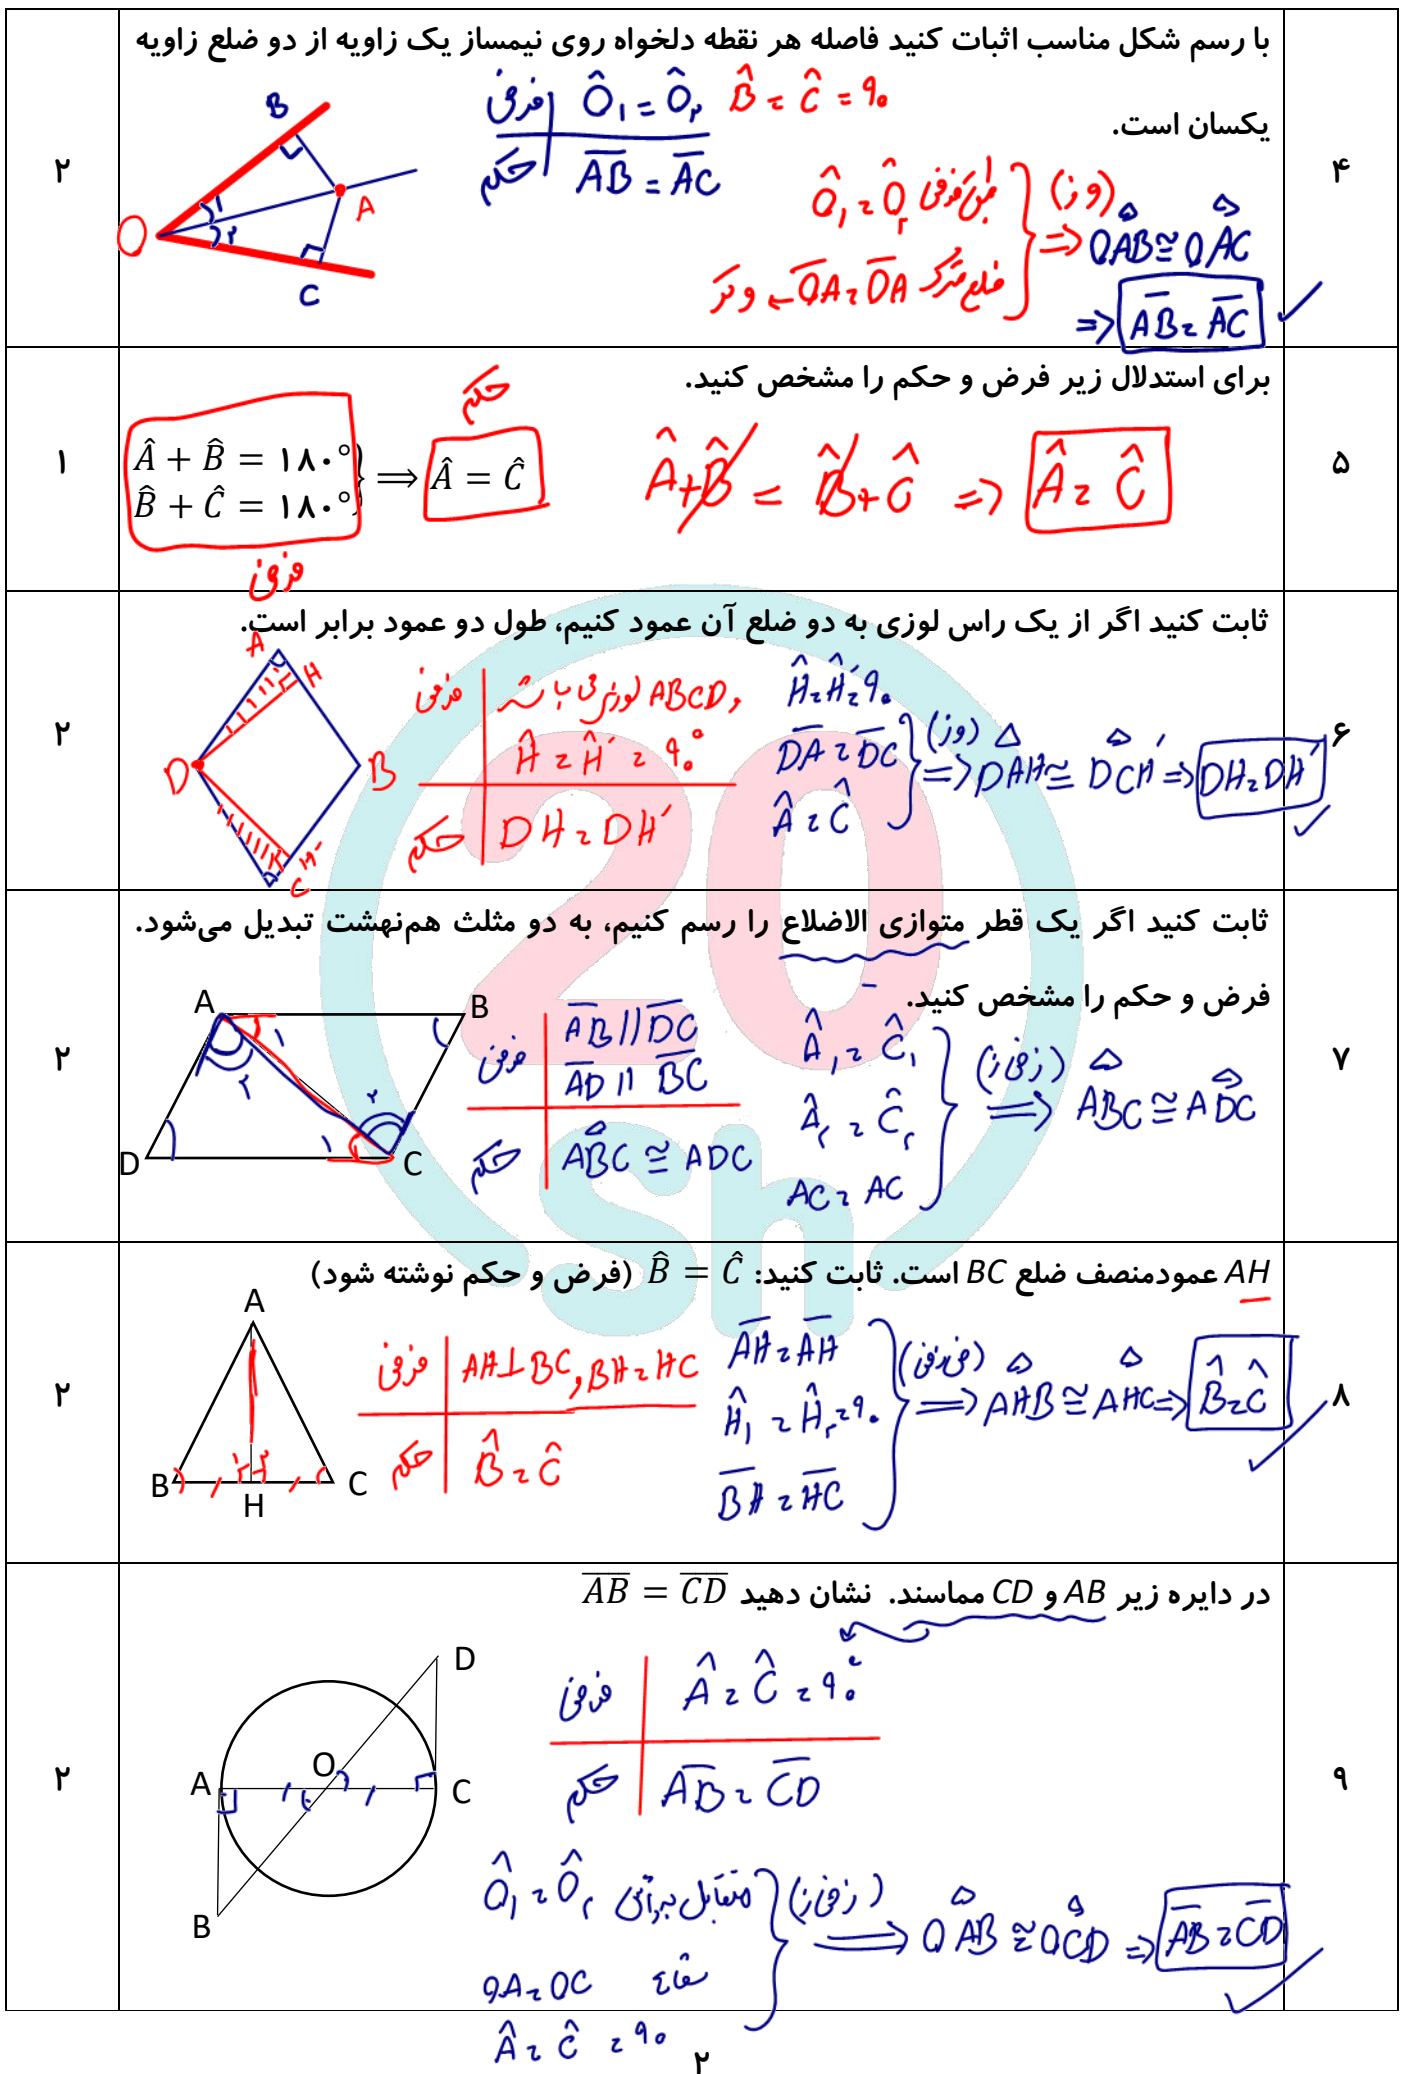 ۴
با رسم شکل مناسب اثبات کنید فاصله هر نقطه دلخواه روی نیمساز یک زاویه از دو ضلع زاویه
یکسان است.
۲
B
A
O
C
۱
۲
فرض Ô۱ = Ô۲ B̂ = Ĉ = ۹۰
حکم AB = AC
طبق فرض Ô۱ = Ô۲
ضلع مشترک OA = OA ← وتر
(و ز) ⇒ OAB ≅ OAC
⇒ AB = AC
۵
برای استدلال زیر فرض و حکم را مشخص کنید.
۱
حکم
Â + B̂ = ۱۸۰°
B̂ + Ĉ = ۱۸۰°
⟹ Â = Ĉ
فرض
Â + B̂ = B̂ + Ĉ ⇒ Â = Ĉ
۶
ثابت کنید اگر از یک راس لوزی به دو ضلع آن عمود کنیم، طول دو عمود برابر است.
۲
A
H
D
B
H'
C
فرض ABCD لوزی می باشد و
Ĥ = Ĥ' = ۹۰°
حکم DH = DH'
Ĥ = Ĥ' = ۹۰
DA = DC
Â = Ĉ
(وز) ⇒ DAH ≅ DCH' ⇒ DH = DH'
۷
ثابت کنید اگر یک قطر متوازی الاضلاع را رسم کنیم، به دو مثلث هم‌نهشت تبدیل می‌شود.
فرض و حکم را مشخص کنید.
۲
A
B
D
C
۱
۲
۲
۱
فرض AB || DC
AD || BC
حکم ABC ≅ ADC
Â۱ = Ĉ۱
Â۲ = Ĉ۲
AC = AC
(ز ض ز) ⇒ ABC ≅ ADC
۸
AH عمودمنصف ضلع BC است. ثابت کنید: B̂ = Ĉ (فرض و حکم نوشته شود)
۲
A
B
H
C
۱ ۲
فرض AH ⊥ BC , BH = HC
حکم B̂ = Ĉ
AH = AH
Ĥ۱ = Ĥ۲ = ۹۰
BH = HC
(ض ز ض) ⇒ AHB ≅ AHC ⇒ B̂ = Ĉ
۹
در دایره زیر AB و CD مماسند. نشان دهید AB = CD
۲
D
O
A
C
B
فرض Â = Ĉ = ۹۰°
حکم AB = CD
Ô۱ = Ô۲ متقابل به رأس
OA = OC شعاع
Â = Ĉ = ۹۰
(ز ض ز) ⇒ OAB ≅ OCD ⇒ AB = CD
20
Sh
۲